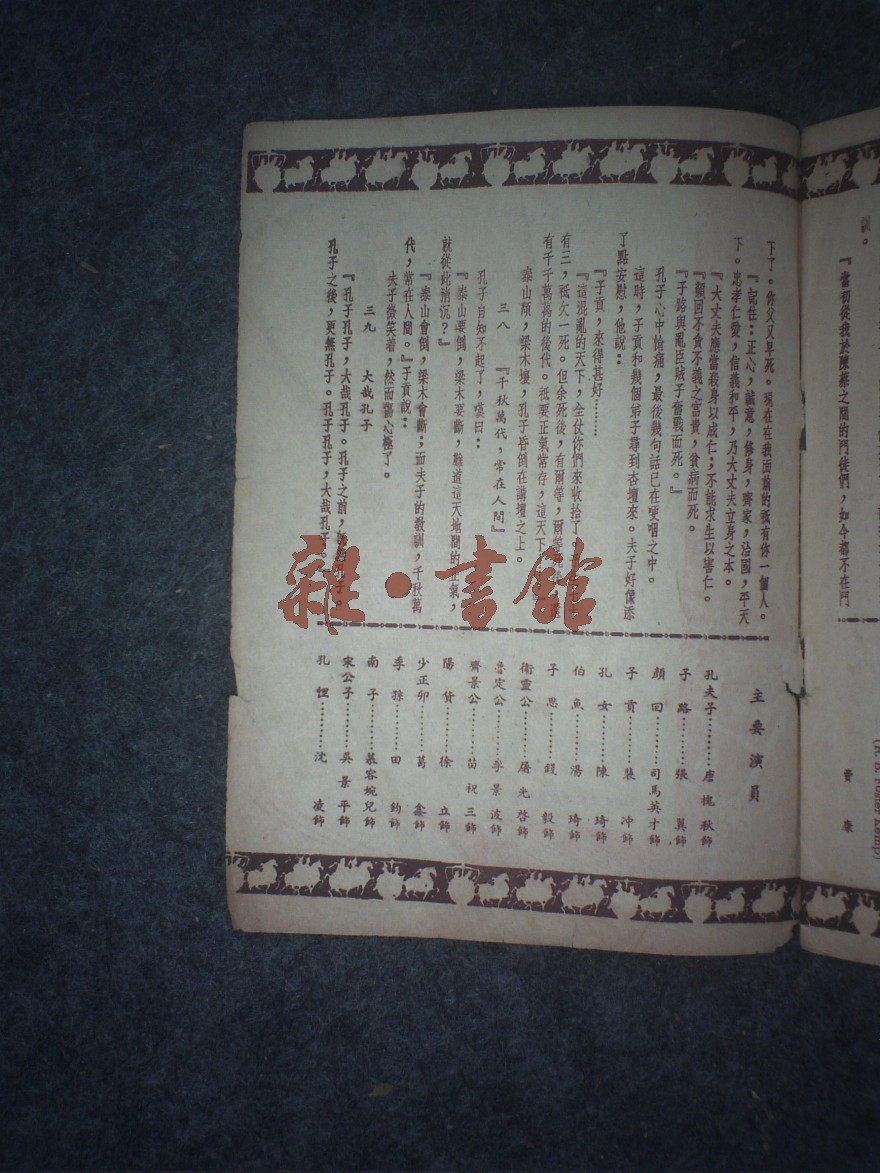 訓。
『當初從我於陳蔡之間的門徒們，如今都不在門
費 康
下了。你父又早死。現在在我面前的祇有你一個人。
『記住：正心，誠意，修身，齊家，治國，平天
下。忠孝仁愛，信義和平，乃大丈夫立身之本。
『大丈夫應當殺身以成仁；不能求生以害仁。
『顏回不貪不義之富貴，貧病而死。
『子路與亂臣賊子奮戰而死。』
孔子心中愴痛，最後幾句話已在哽咽之中。
這時，子貢和幾個弟子尋到杏壇來。夫子好像添
了點安慰，他說：
『子貢，來得甚好………
『這混亂的天下，全仗你們來收拾了。
有三，祇欠一死。但余死後，有爾等，爾等
有千千萬萬的後代。祇要正氣常存，這天下
泰山頹，梁木壞，孔子昏倒在講壇之上。
三八 『千秋萬代，常在人間』
孔子自知不起了，嘆曰：
『泰山要倒，梁木要斷，難道這天地間的正氣，
就從此消沉？』
『泰山會倒，梁木會斷；而夫子的教訓，千秋萬
代，常在人間。』子貢說：
夫子微笑着，然而傷心極了。
三九 大哉孔子
『孔子孔子，大哉孔子。孔子之前，孔子。
孔子之後，更無孔子。孔子孔子，大哉孔子。
主要演員
孔夫子………唐槐秋飾
子路………張翼飾
顏回………司馬英才飾
子貢………裴冲飾
孔女………陳琦飾
伯魚………湯琦飾
子思………錢毅飾
衛靈公………屠光啓飾
魯定公………李景波飾
齊景公………苗祝三飾
陽貨………徐立飾
少正卯………葛鑫飾
季孫………田鈞飾
南子………慕容婉兒飾
宋公子………吳景平飾
孔悝………沈凌飾
雜·書館